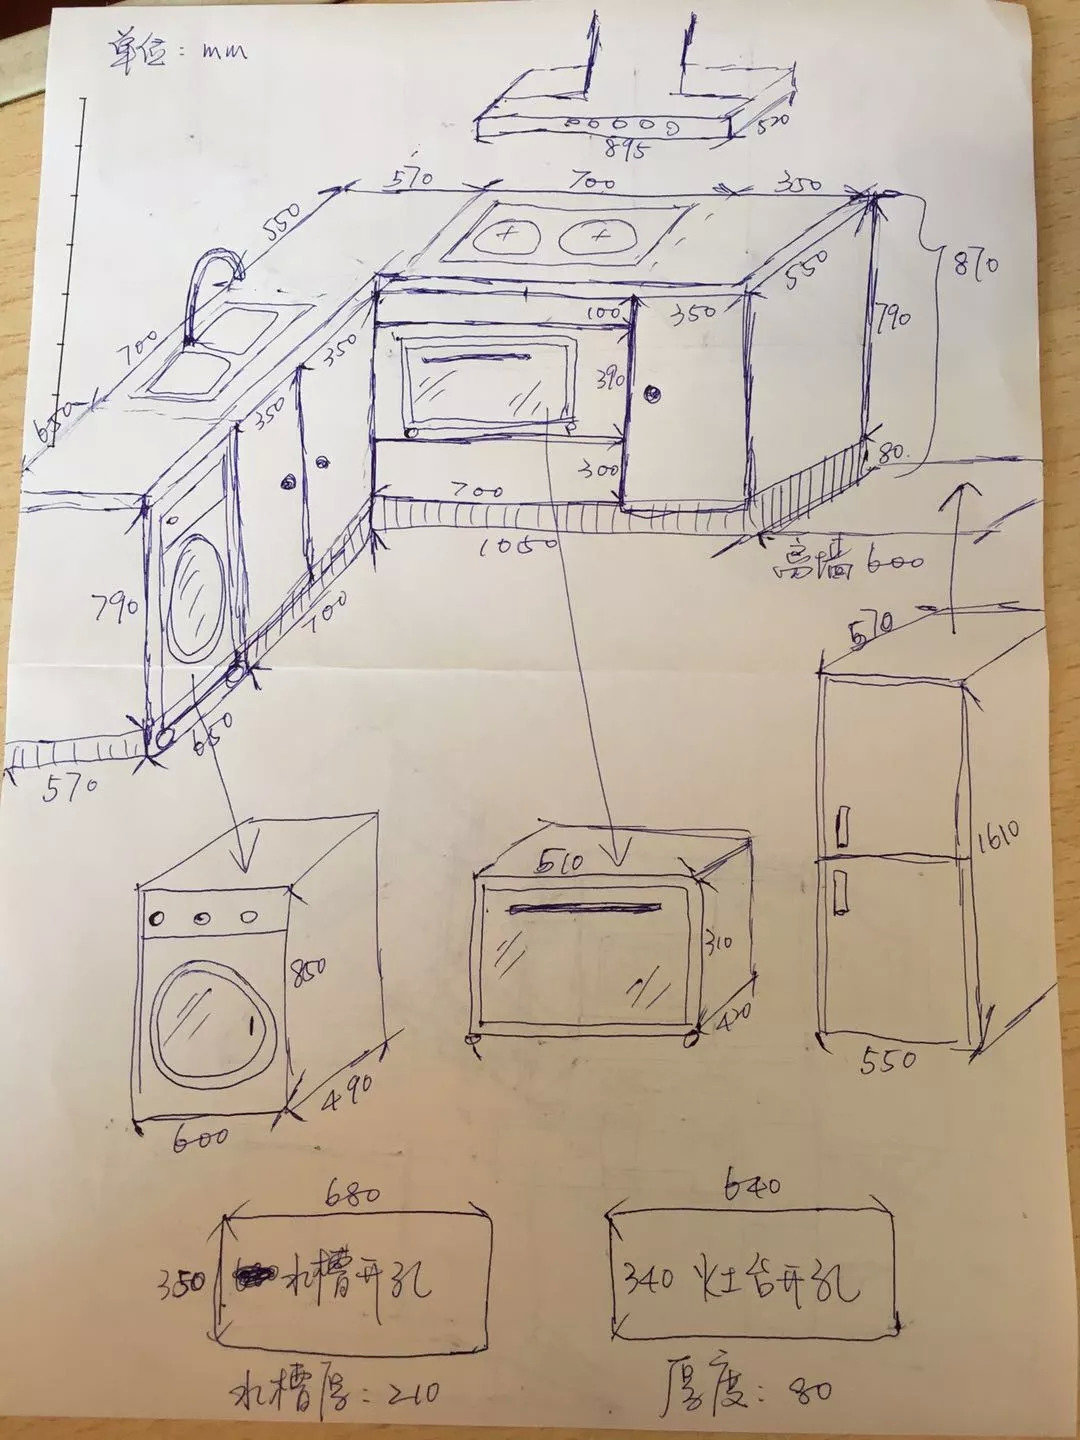 单位：mm
520
895
570
700
350
550
870
550
700
350
100
350
790
390
650
350
300
80
700
1050
离墙600
790
700
570
650
570
510
1610
310
850
420
550
490
600
680
640
350 水槽开孔
340 灶台开孔
水槽厚：210
厚度：80